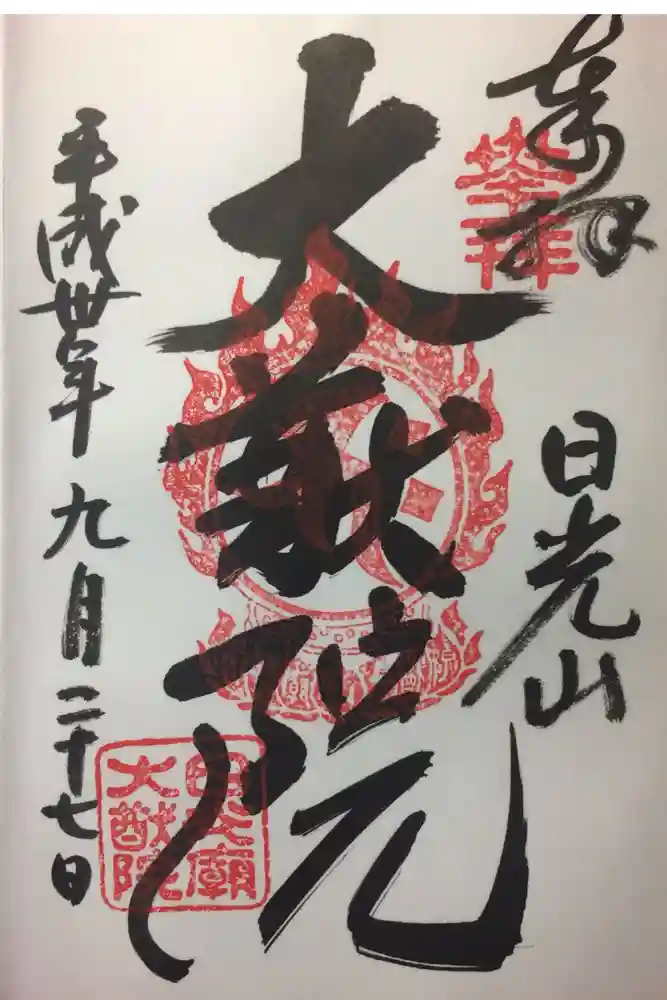 奉拝
日光山
大猷院
平成卅年九月二十七日
奉拝
日光廟
大猷院